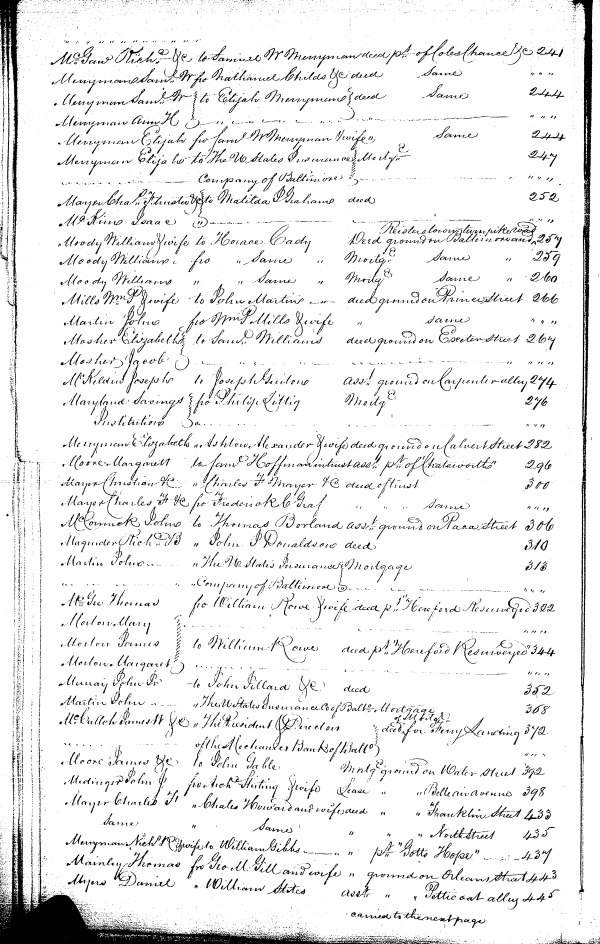 McGaw Richd &c to Samuel W Merryman deed pt of Coles Chance &c 241
Merryman Saml W fro Nathaniel Childs &c deed same " " "
Merryman Saml W to Elijah Merryman deed Same 244
Merryman Ann H " " "
Merryman Elijah fro Saml W Merryman & wife " Same 244
Merryman Elijah to The U States Insurance Mortge 247
Company of Baltimore
Mayer Chas F trustee &c to Matilda Graham deed 252
McKim Isaac " " " "
Reisterstown turnpike road
Moody William & wife to Horace Cady Deed ground on Baltimore and 257
Moody William fro " Same " Mortge " same " 259
Moody William " " Same " Mortge same " 260
Mills Wm P & wife to John Martin deed ground on Prince Street 266
Martin John fro Wm P Mills & wife " same " " "
Mosher Elizabeth to Saml Williams deed ground on Exeter Street 267
Mosher Jacob " " "
McKildin Joseph to Joseph asst ground on Carpenter alley 274
Maryland Savings fro Philip Littig Mortge 276
Institution " " "
Merryman Elizabeth " Ashton Alexander & wife deed ground on Calvert Street 282
Moore Margaret to Saml Hoffman in trust asst pt of Chatsworth 296
Mayer Christian &c " Charles F Mayer &c deed of trust 300
Mayer Charles F &c fro Frederick C Graf " " same " " "
McCormick John to Thomas Borland asst ground on Paca Street 306
Magruder Richd B " John Donaldson deed 310
Martin John " The U States Insurance Mortgage 313
" " Company of Baltimore
McGee Thomas fro William Rowe & wife deed pt "Hereford Resurveyed" 322
Morlow Mary " " "
Morlow James to William Rowe deed pt "Hereford Resurveyed" 344
Morlow Margaret
Murray John Jr to John Tillard &c deed 352
Martin John " The U States Insurance Co of Balto Mortgage 368
McCulloh James W &c " The President & Directors deed for Ferry Landing 372
" " of the Mechanics Bank of Balto " " "
Moore James &c to John Gable Mortge ground on Water Street 392
Medinger John fro Archd Stirling & wife Lease " " Bellair avenue 398
Mayer Charles F " Charles Howard and wife deed " " Franklin Street 433
Same " Same " " North Street 435
Merryman Nichs R & wife to William Gibbs " pt "Gotts Hope" 437
Mainley Thomas fro Geo M Gill and wife " ground on Orleans Street 443
Myers Daniel " William States asst " " Petticoat alley 445
carried to the next page